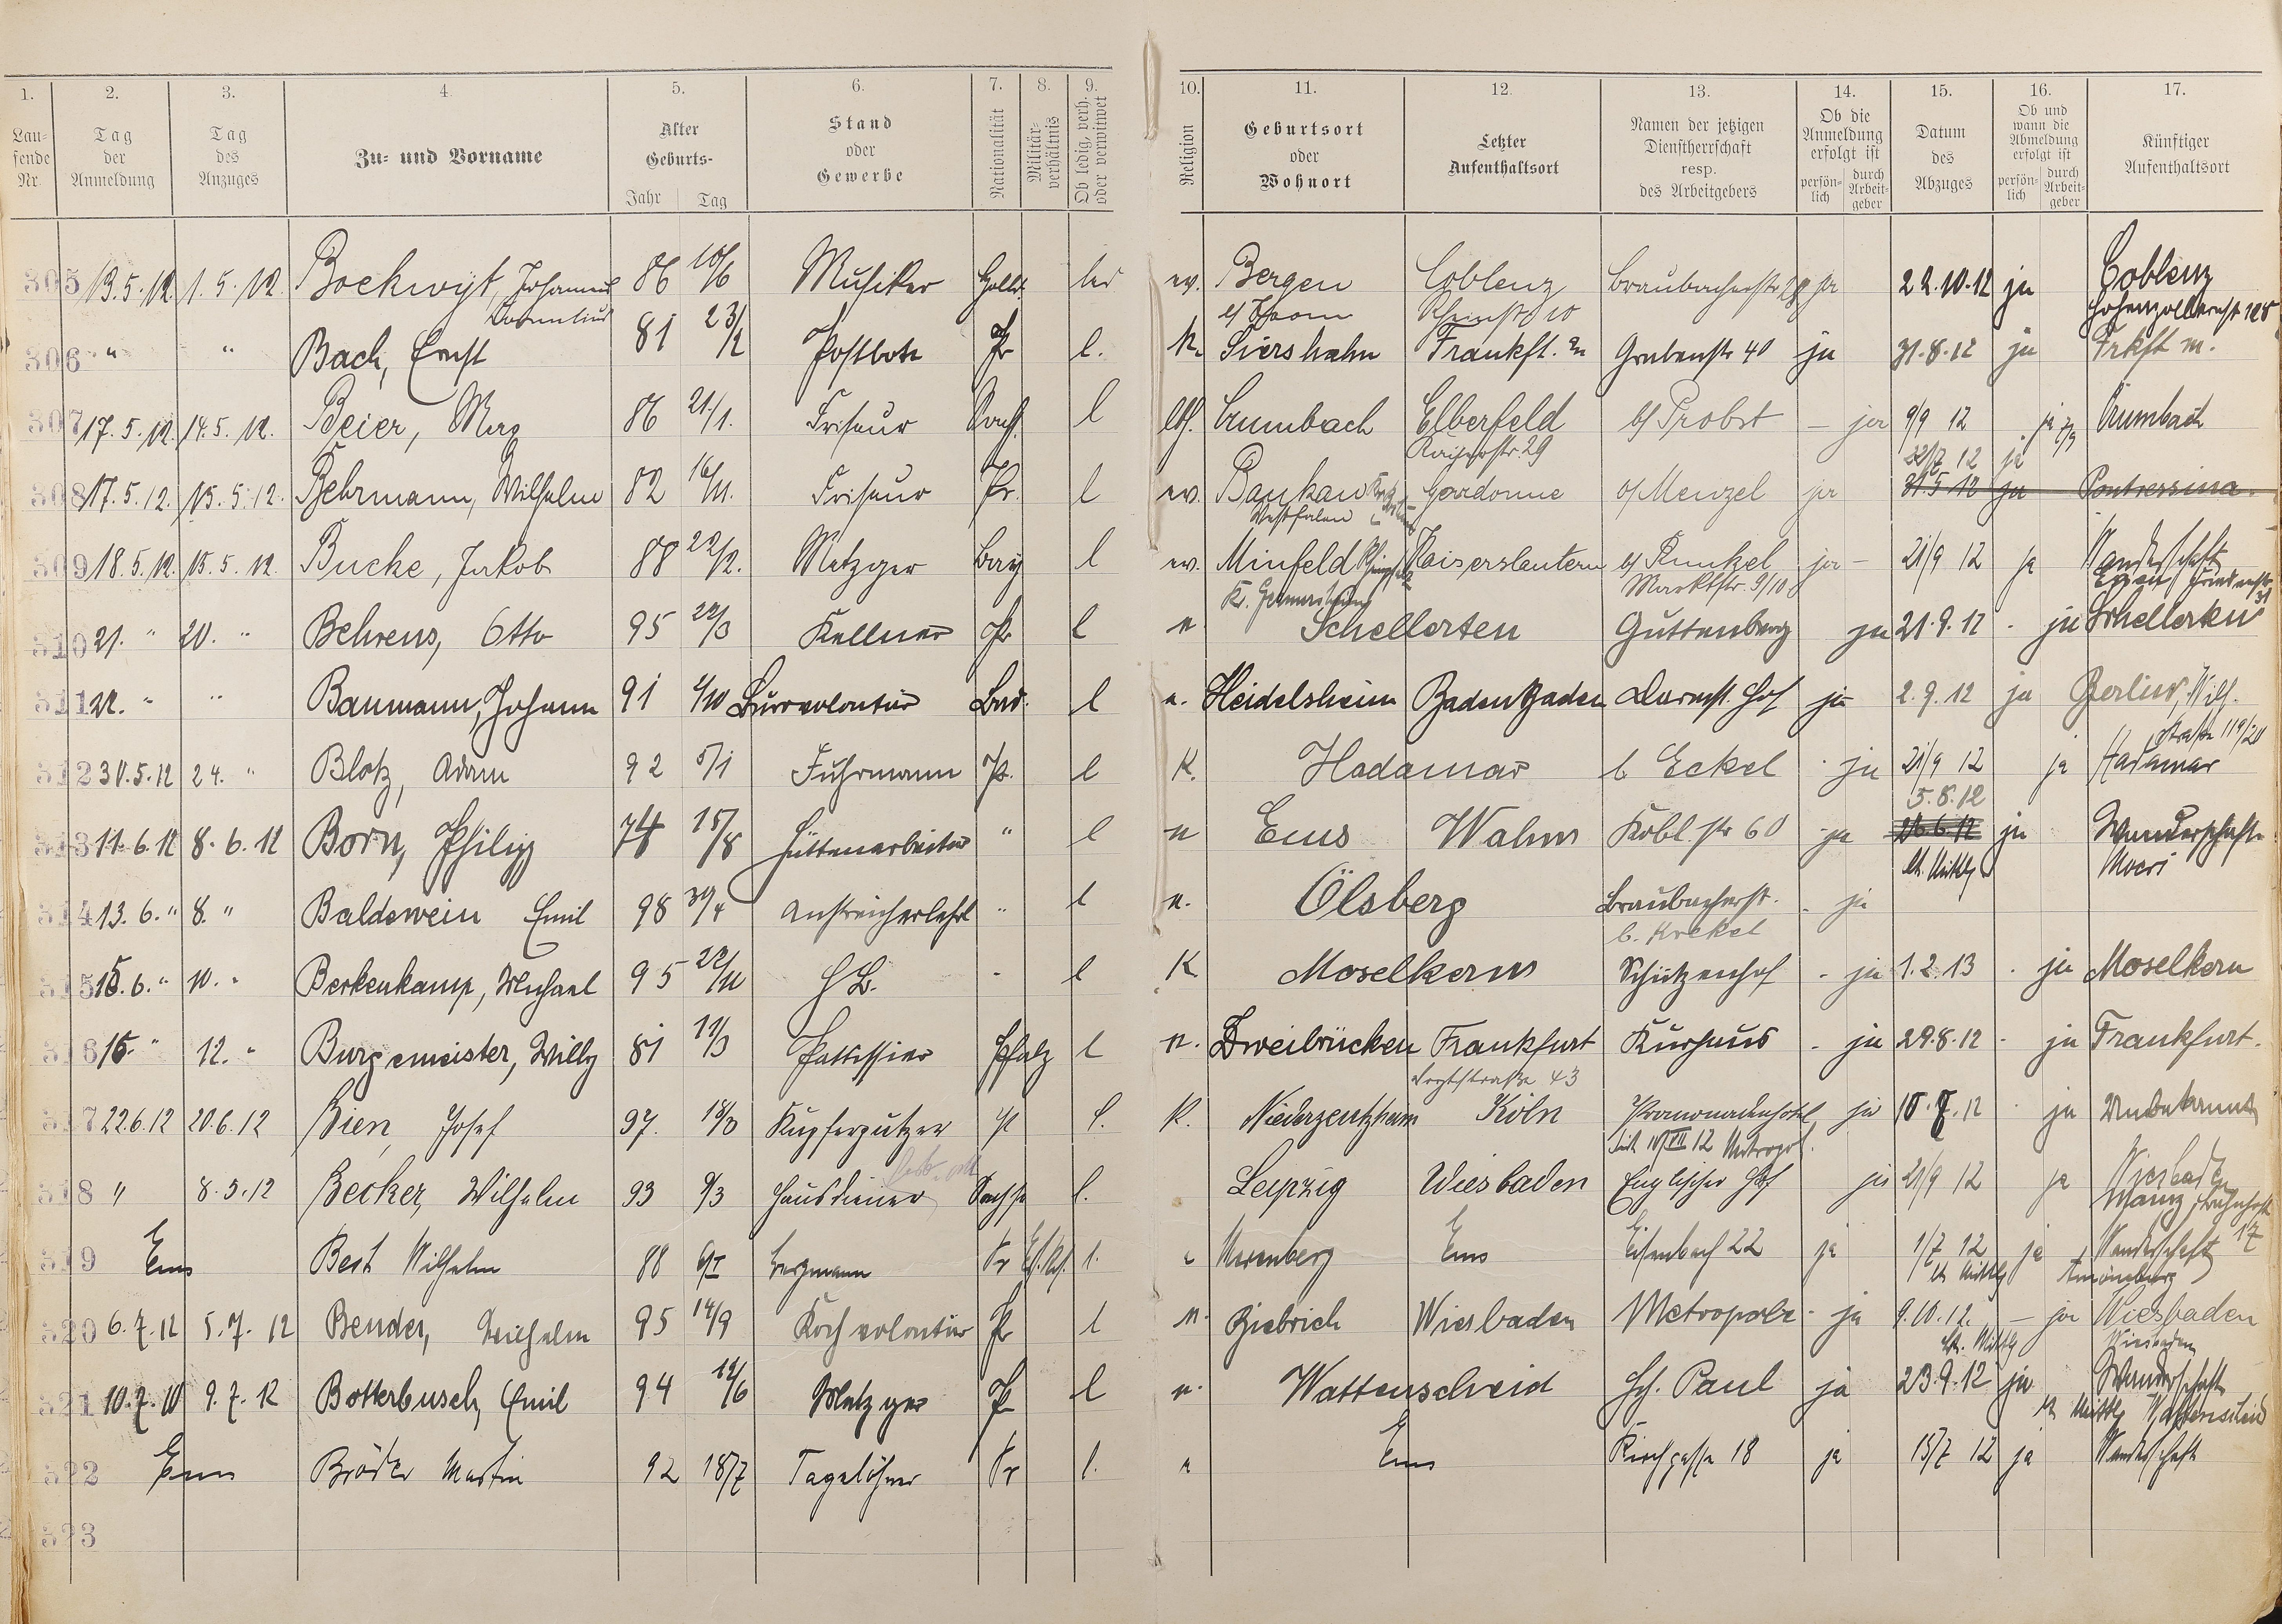 1. 2. 3. 4. 5. 6. 7. 8. 9. 10. 11. 12. 13. 14. 15. 16. 17.
Laufende Nr. Tag der Anmeldung Tag des Anzuges Zu- und Vorname Alter Geburts- Jahr Tag Stand oder Gewerbe Nationalität Militärverhältnis Ob ledig, verh. oder verwitwet Religion Geburtsort oder Wohnort Letzter Aufenthaltsort Namen der jetzigen Dienstherrschaft resp. des Arbeitgebers Ob die Anmeldung erfolgt ist persönlich durch Arbeitgeber Datum des Abzuges Ob und wann die Abmeldung erfolgt ist persönlich durch Arbeitgeber Künftiger Aufenthaltsort
305 13.5.12. 1.5.12. Bockwyt, Johannes 86 Musiker Holld. led ev. Bergen Coblenz Braubacherstr ja 22.10.12 ja Coblenz
b/ Rheinstr 10 Hohenzollernstr 125
306 " " Bach, Ernst 81 23/2 Postbote Pr l. k. Siershahn Frankft. Grabenstr 40 ja 31.8.12 ja Frkft m.
307 17.5.12. 14.5.12. Beier, Max 86 21./1. Friseur Sachs. l lth. Crumbach Elberfeld b/ Probst – ja 9/9 12 ja Crumbach
Kaiserstr. 29 22/7 12 ja
308 17.5.12. 15.5.12. Behrmann, Wilhelm 82 16/11. Friseur Pr. l ev. Baukau Gardonne b/ Menzel ja 31.5 12 ja Pontressina
Westfalen
309 18.5.12. 15.5.12. Bucke, Jakob 88 22/2. Metzger Bay l ev. Minfeld Kaiserslautern b/ Runkel ja – 21/9 12 ja Wanderschaft
Kr. Germersheim Marktstr. 9/10 Essen
310 21. " 20. " Behrens, Otto 95 22/3 Kellner Pr l e Schellerten Guttenberg ja 21.9.12 - ja Schellerten
311 22. " " Baumann, Johann 91 4/10 Bürovolontär Bad. l e. Heidelsheim Baden Baden Darmst. Hof ja 2.9.12 ja Berlin, Wilh.
straße 119/20
312 30.5.12 24. " Blotz, Adam 92 5/1 Fuhrmann Pr. l K. Hadamar b Eckel - ja 21/9 12 ja Hadamar
5.8.12
313 11.6.12 8.6.12 Born, Philipp 74 15/8 Hüttenarbeiter " l e Ems Walms Kobl. str 60 ja 26.6.12 ja Wanderschaft
lt. Mittlg
314 13.6. " 8. " Baldewein Emil 98 30/4 Anstreicherlehrl " l e. Ölsberg Braubacherstr. - ja
b. Krekel
315 15.6. " 10. " Berkenkamp, Michael 95 22/11 H B. - l K Moselkern Schützenhof - ja 1.2.13 - ja Moselkern
316 16. " 12. " Burgemeister, Willy 81 11/3 Pattissier Pfalz l e. Zweibrücken Frankfurt Kurhaus - ja 29.8.12 - ja Frankfurt.
straße 43
317 22.6.12 20.6.12 Bien, Josef 97. 18/3 Kupferputzer Pr l. K. Niederzeutzheim Köln Promenadenhotel ja 10.7.12 - ja Unbekannt
seit 10/VII 12 Metropol.
318 " 8.5.12 Becker, Wilhelm 93 9/3 Hausdiener Sachse l. Leipzig Wiesbaden Englischer Hof ja 21/9 12 ja Wiesbaden
Mainz
319 Ems Best Wilhelm 88 6/I Bergmann Pr l. e Merenberg Ems Eisenbach 22 ja 1/7 12 ja Wanderschaft
lt Mittlg Amöneburg
320 6.7.12 5.7.12 Bender, Wilhelm 95 14/9 Kochvolontär Pr l e. Biebrich Wiesbaden Metropole - ja 9.10.12. – ja Wiesbaden
lt. Mittlg Wiesbaden
321 10.7.10 9.7.12 Botterbusch, Emil 94 12/6 Metzger Pr l e. Wattenscheid Hch. Paul ja 23.9.12 ja Wanderschaft
lt Mittlg Wattenscheid
322 Ems Bröder Martin 92 18/7 Tagelöhner Pr l. e Ems Kirchgasse 18 ja 15/7 12 ja Wanderschaft
323